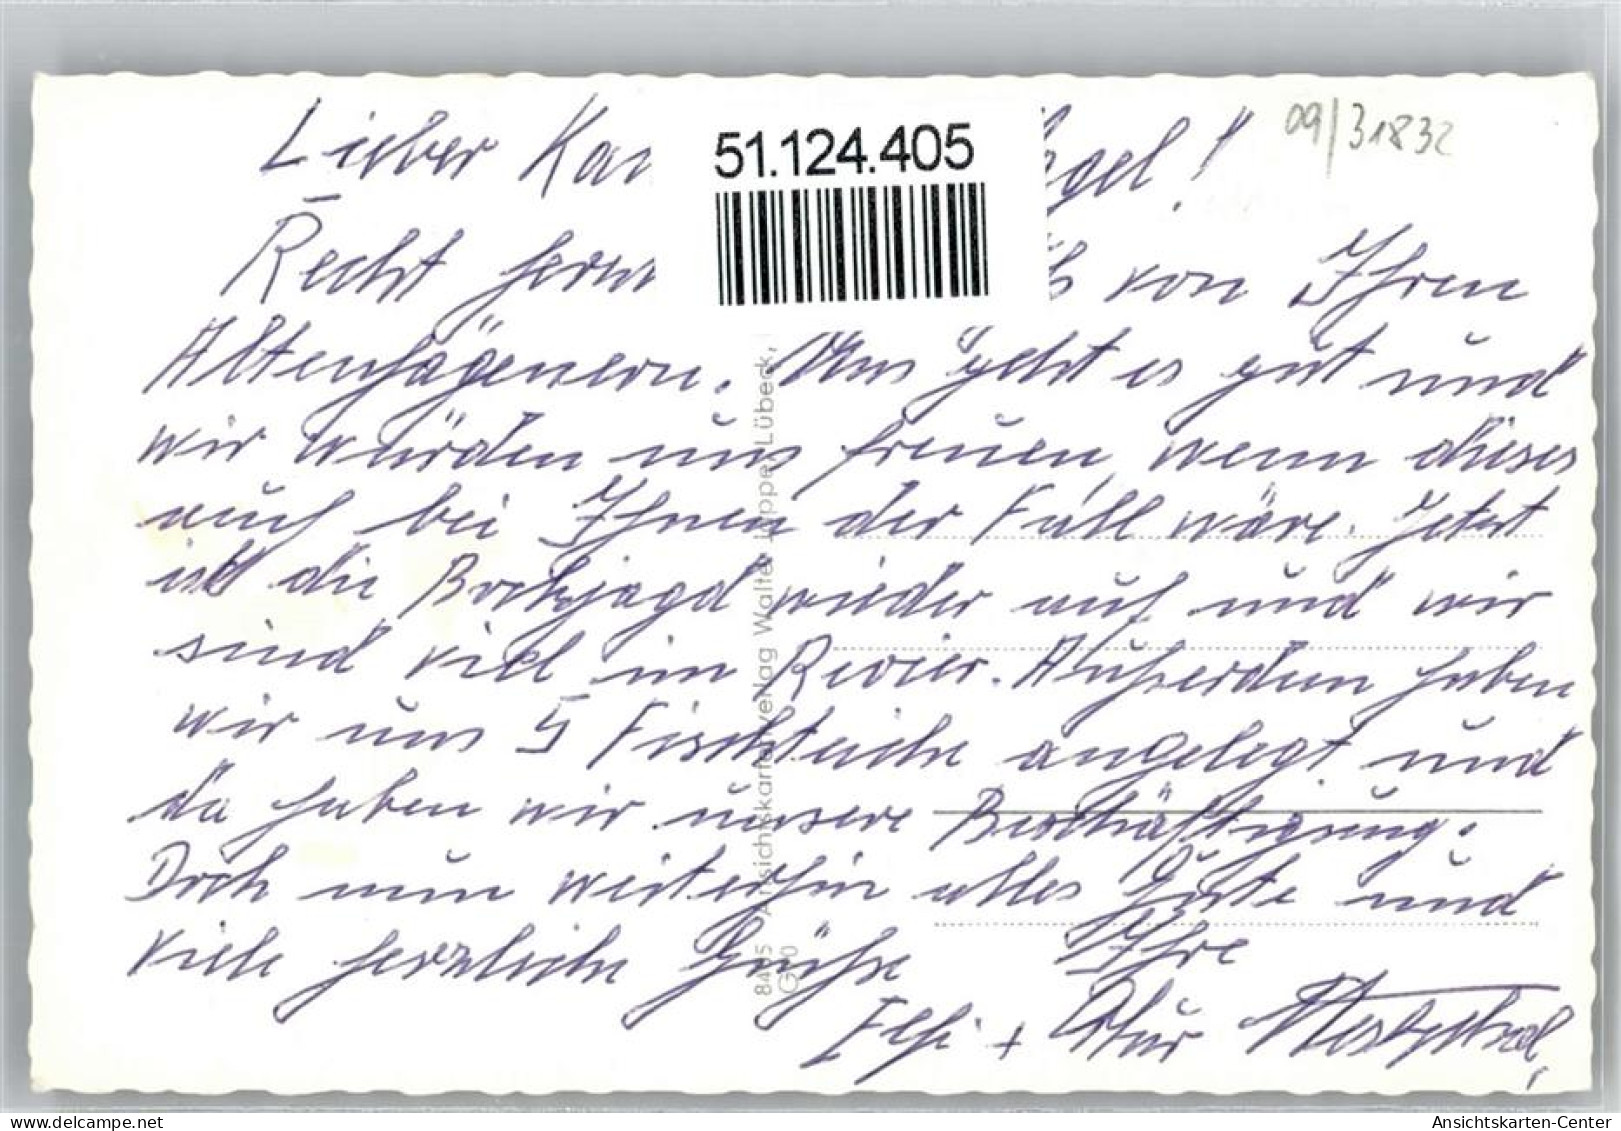 Lieber Kar gel!
09/31832
51.124.405
Recht von Ihren
Altenhägenern. Uns geht es gut und
wir würden uns freuen, wenn dieses
auch bei Ihnen der Fall wäre. Jetzt
ist die Bockjagd wieder auf und wir
sind viel im Revier. Außerdem haben
wir uns 5 Fischteiche angelegt und
da haben wir unsere Beschäftigung.
Doch nun weiterhin alles Gute und
viele herzliche Grüße Ihre
+ Artur Westphal
Ansichtskartenverlag Walter Lübeck,
Ansichtskarten-Center